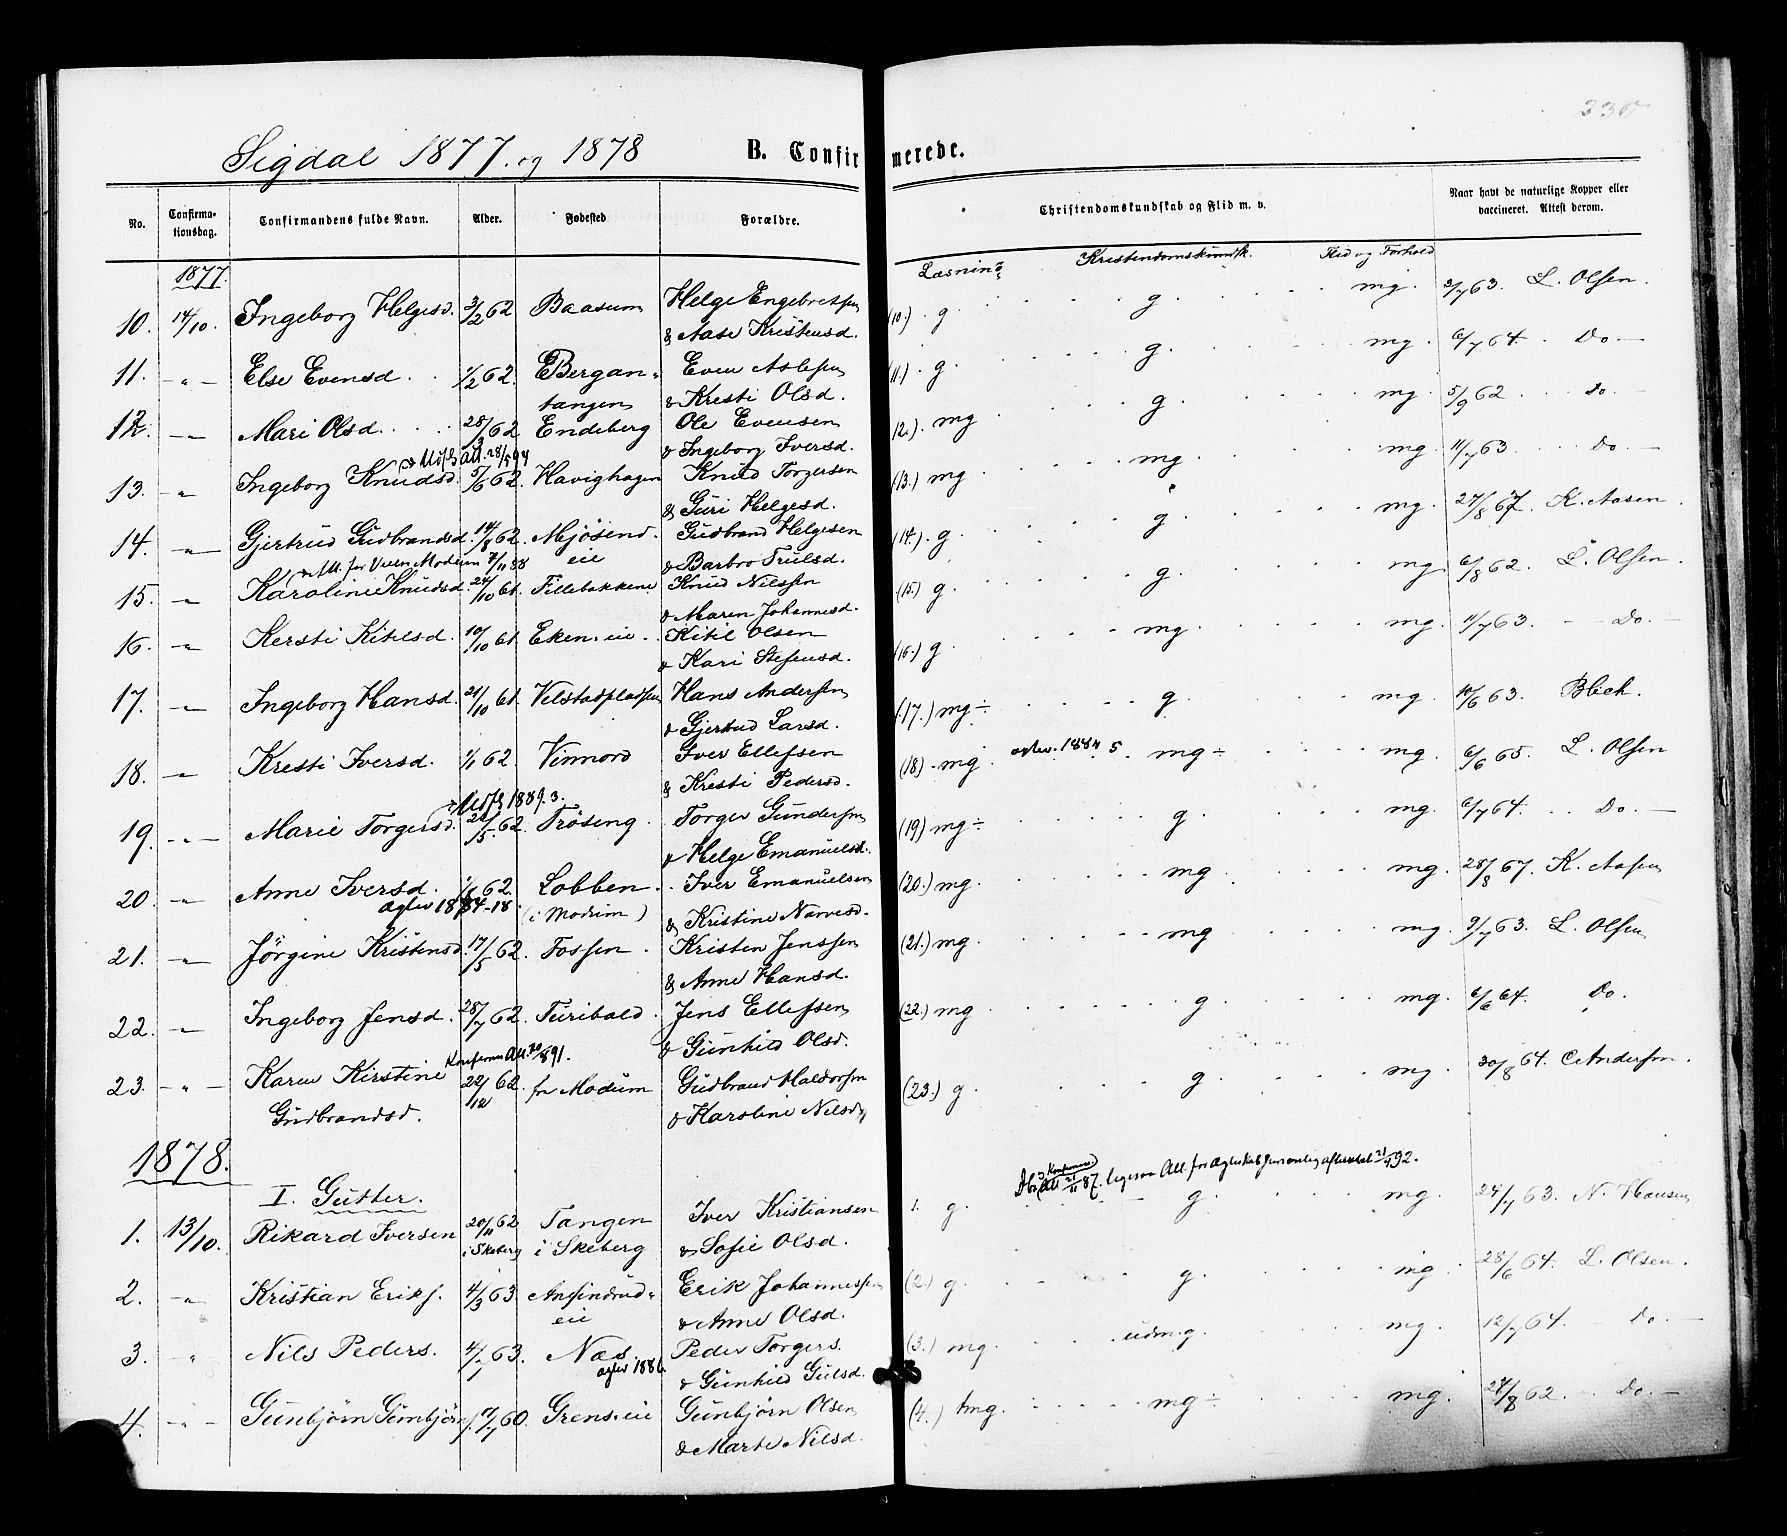 330
Sigdal 1877. og 1878 B. Confirmerede.
No. Confirmationsdag. Confirmandens fulde Navn. Alder. Fødested Forældre. Christendomskundskab og Flid m. v. Naar havt de naturlige Kopper eller vaccineret. Attest derom.
1877. Læsning Kristendomskundsk. Flid og Forhold
10. 14/10. Ingeborg Helgesd. 3/2 62 Baasum Helge Engebretsen (10.) g g. mg. 2/7 63. L. Olsen.
& Aase Kristensd.
11. -"- Else Evensd. 1/2 62. Bergan- Even Aslesen (11.) g g. mg. 6/7 64. Do
tangen & Kresti Olsd.
12. -"- Mari Olsd. 28/3 62 Endeberg Ole Evensen (12.) mg g. mg. 5/9 62 do.
& Ingeborg Iversd.
Udfl. Att. 28/5 94
13. -"- Ingeborg Knudsd. 5/6 62. Havighagen Knud Torgersen (13.) mg mg. mg. 11/7 63. Do.
& Guri Helgesd.
14. -"- Gjertrud Gudbrandsd. 14/8 62. Mjösend. Gudbrand Helgesen (14.) g g. mg. 27/8 67. K. Aasen.
eie & Barbro Trulsd.
Att. for Vielse Modum 7/11 88
15. -"- Karoline Knudsd. 24/10 61. Fillebakkene Knud Nilssen (15) g. g. mg. 6/8 62. L. Olsen.
& Maren Johannesd.
16. -"- Kersti Kitilsd. 10/10 61. Eken. eie. Kitil Olsen (16.) g. mg. mg. 11/7 63. Do.
& Kari Stefensd.
17. -"- Ingeborg Hansd. 21/10 61. Velstadpladsen Hans Andersen (17.) mg÷ g. mg. 10/6 63. Blich.
& Gjertrud Larsd.
18. -"- Kresti Iversd. 1/1 62 Vinnord Iver Ellefsen (18) mg. 1884. 5. mg÷ mg. 6/6 65. L. Olsen
& Kresti Pedersd.
Udfl. 1889. 3.
19. -"- Marie Torgersd. 21/5 62. Tröseng. Torger Gundersen (19) mg÷ g. mg. 6/7 64. Do.
& Helge Emanuelsd.
20. -"- Anne Iversd. 1/8 62. Lobben. Iver Emanuelsen (20.) mg. mg mg. 28/8 67. K. Aasen
1884-18. (i Modum) & Kristine Narvesd.
21. -"- Jörgine Kristensd. 17/5 62. Fossen. Kristen Jenssen (21.) mg. mg mg. 9/7 63. L. Olsen
& Anne Hansd.
22. -"- Ingeborg Jensd. 28/7 62. Turibald. Jens Ellefsen (22.) mg g. mg. 6/6 64. Do.
& Gunhild Olsd.
Att. 20/8 91.
23. -"- Karen Kirstine 22/12 62. fr Modum Gudbrand Haldorsen (23.) g. g. mg. 30/8 64. C Andersen.
Gudbrandsd. & Karoline Nilsd.
1878. Att. 21/11 87. ligesaa Att. for
I. Gutter.
1. 13/10. Rikard Iversen 20/11 62 Tangen Iver Kristiansen 1. g. g. mg. 24/7 63. N. Hansen
i Skeberg i Skeberg & Sofie Olsd.
2. -"- Kristian Eriks. 4/3 63. Ansindrud- Erik Johannessen (2.) g. g. mg. 28/6 64. L. Olsen.
eie & Anne Olsd.
3. -"- Nils Peders. 4/7 63. Næs Peder Torgers. (3.) mg. udm. g. mg. 12/7 64. Do.
1886. & Gunhild Gulsd.
4. -"- Gunbjörn Gunbjörns. 7/7 60. Grens. eie Gunbjörn Olsen (4.) tmg. mg÷ mg. 24/8 62. Do.
& Marte Nilsd.